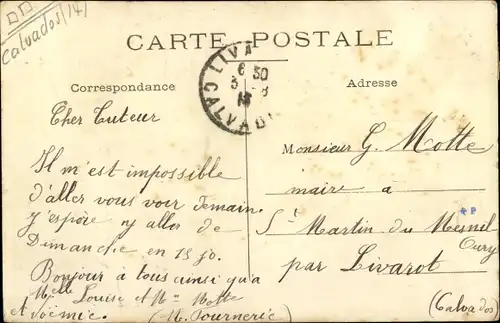 Calvados (14)
CARTE POSTALE
Correspondance
Adresse
LIVA
6 30
3 - 8
CALVADOS
Cher Tuteur
Il m'est impossible
d'aller vous voir demain.
J'espère y aller de
Dimanche en 15 jo.
Bonjour à tous ainsi qu'a
Melle Louise et Mme Motte
et Noémie. (M. Fournerie)
Monsieur G. Motte
maire à
St Martin du Mesnil
Oury
par Livarot
(Calvados)